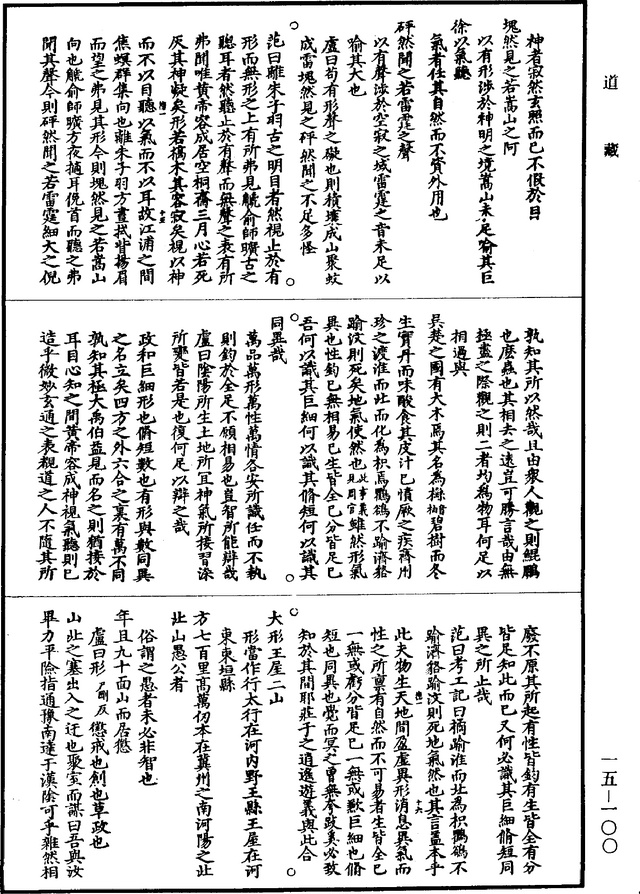 道藏
神者寂然玄照而已不假於目
塊然見之若嵩山之阿
以有形涉於神明之境嵩山未足喻其巨
徐以氣聽
氣者任其自然而不資外用也
砰然聞之若雷霆之聲
以有聲涉於空寂之域雷霆之音未足以
喻其大也
盧曰苟有形聲之礙也則積壤成山聚蚊
成雷塊然見之砰然聞之不足多怪
范曰離朱子羽古之明目者然視止於有
形而無形之上有所弗見䚦俞師曠古之
聰耳者然聽止於有聲而無聲之表有所
弗聞唯黃帝容成居空桐齋三月心若死
灰其神凝矣形若槁木其容寂矣視以神
而不以目聽以氣而不以耳故江浦之間
焦螟群集向也離朱子羽方晝拭眥揚眉
而望之弗見其形今則塊然見之若嵩山
向也䚦俞師曠方夜擿耳俛首而聽之弗
聞其聲今則砰然聞之若雷霆細大之倪
孰知其所以然哉且由衆人觀之則鯤鵬
也麼蟲也其相去之遠豈可勝言哉由無
極盡之際觀之則二者均為物耳何足以
相過與
吳楚之國有大木焉其名為櫾碧樹而冬
生實丹而味酸食其皮汁已憤厥之疾齊州
珍之渡淮而北而化為枳焉鸜鵒不踰濟貉
踰汶則死矣地氣使然也此事義見周官雖然形氣
異也性鈞已無相易已生皆全已分皆足已
吾何以識其巨細何以識其脩短何以識其
同異哉
萬品萬形萬性萬情各安所識任而不執
則鈞於全足不願相易也豈智所能辯哉
盧曰陰陽所生土地所宜神氣所接習染
所變皆若是也復何足以辯之哉
政和巨細形也脩短數也有形與數同異
之名立矣四方之外六合之裏有萬不同
孰知其極大禹伯益見而名之則猶接於
耳目心知之間黃帝容成神視氣聽則已
造乎微妙玄通之表覩道之人不隨其所
廢不原其所起有性皆鈞有生皆全有分
皆足知此而已又何必識其巨細脩短同
異之所止哉
范曰考工記曰橘踰淮而北為枳鸜鵒不
踰濟貉踰汶則死地氣然也其言蓋本乎
此夫物生天地間盈虛異形消息異氣而
性之所稟有自然而不可易者生皆全已
一無或虧分皆足已一無或歉巨細也脩
短也同異也覺而冥之曾無夸跂奚必致
知於其間耶莊子之逍遙遊義與此合
大形王屋二山
形當作行太行在河內野王縣王屋在河
東東垣縣
方七百里高萬仞本在冀州之南河陽之北
北山愚公者
俗謂之愚者未必非智也
年且九十面山而居懲
盧曰形 戶剛反 懲戒也創也草政也
山北之塞出入之迂也聚室而謀曰吾與汝
畢力平險指通豫南達于漢陰可乎雜然相
一五—一〇〇